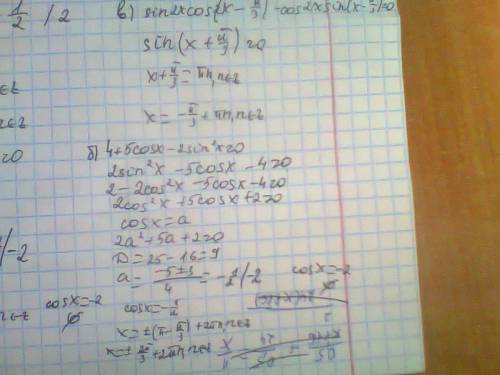 1/2 / 2
в) sin2xcos(x - π/3) - cos2x sin(x - π/3)=0
sin(x + π/3)=0
x + π/3 = πn, n∈z
x = -π/3 + πn, n∈z
б) 4+5cosx - 2sin²x=0
2sin²x - 5cosx - 4=0
2 - 2cos²x - 5cosx - 4=0
2cos²x + 5cosx + 2=0
cosx = a
2a² + 5a + 2=0
D = 25 - 16 = 9
a = (-5±3)/4 = -1/2 / -2
cosx = -2
∅
cosx = -1/2
x = ±(π - π/3) + 2πn, n∈z
x = ± 2π/3 + 2πn, n∈z
/ -2
cosx = -2
∅